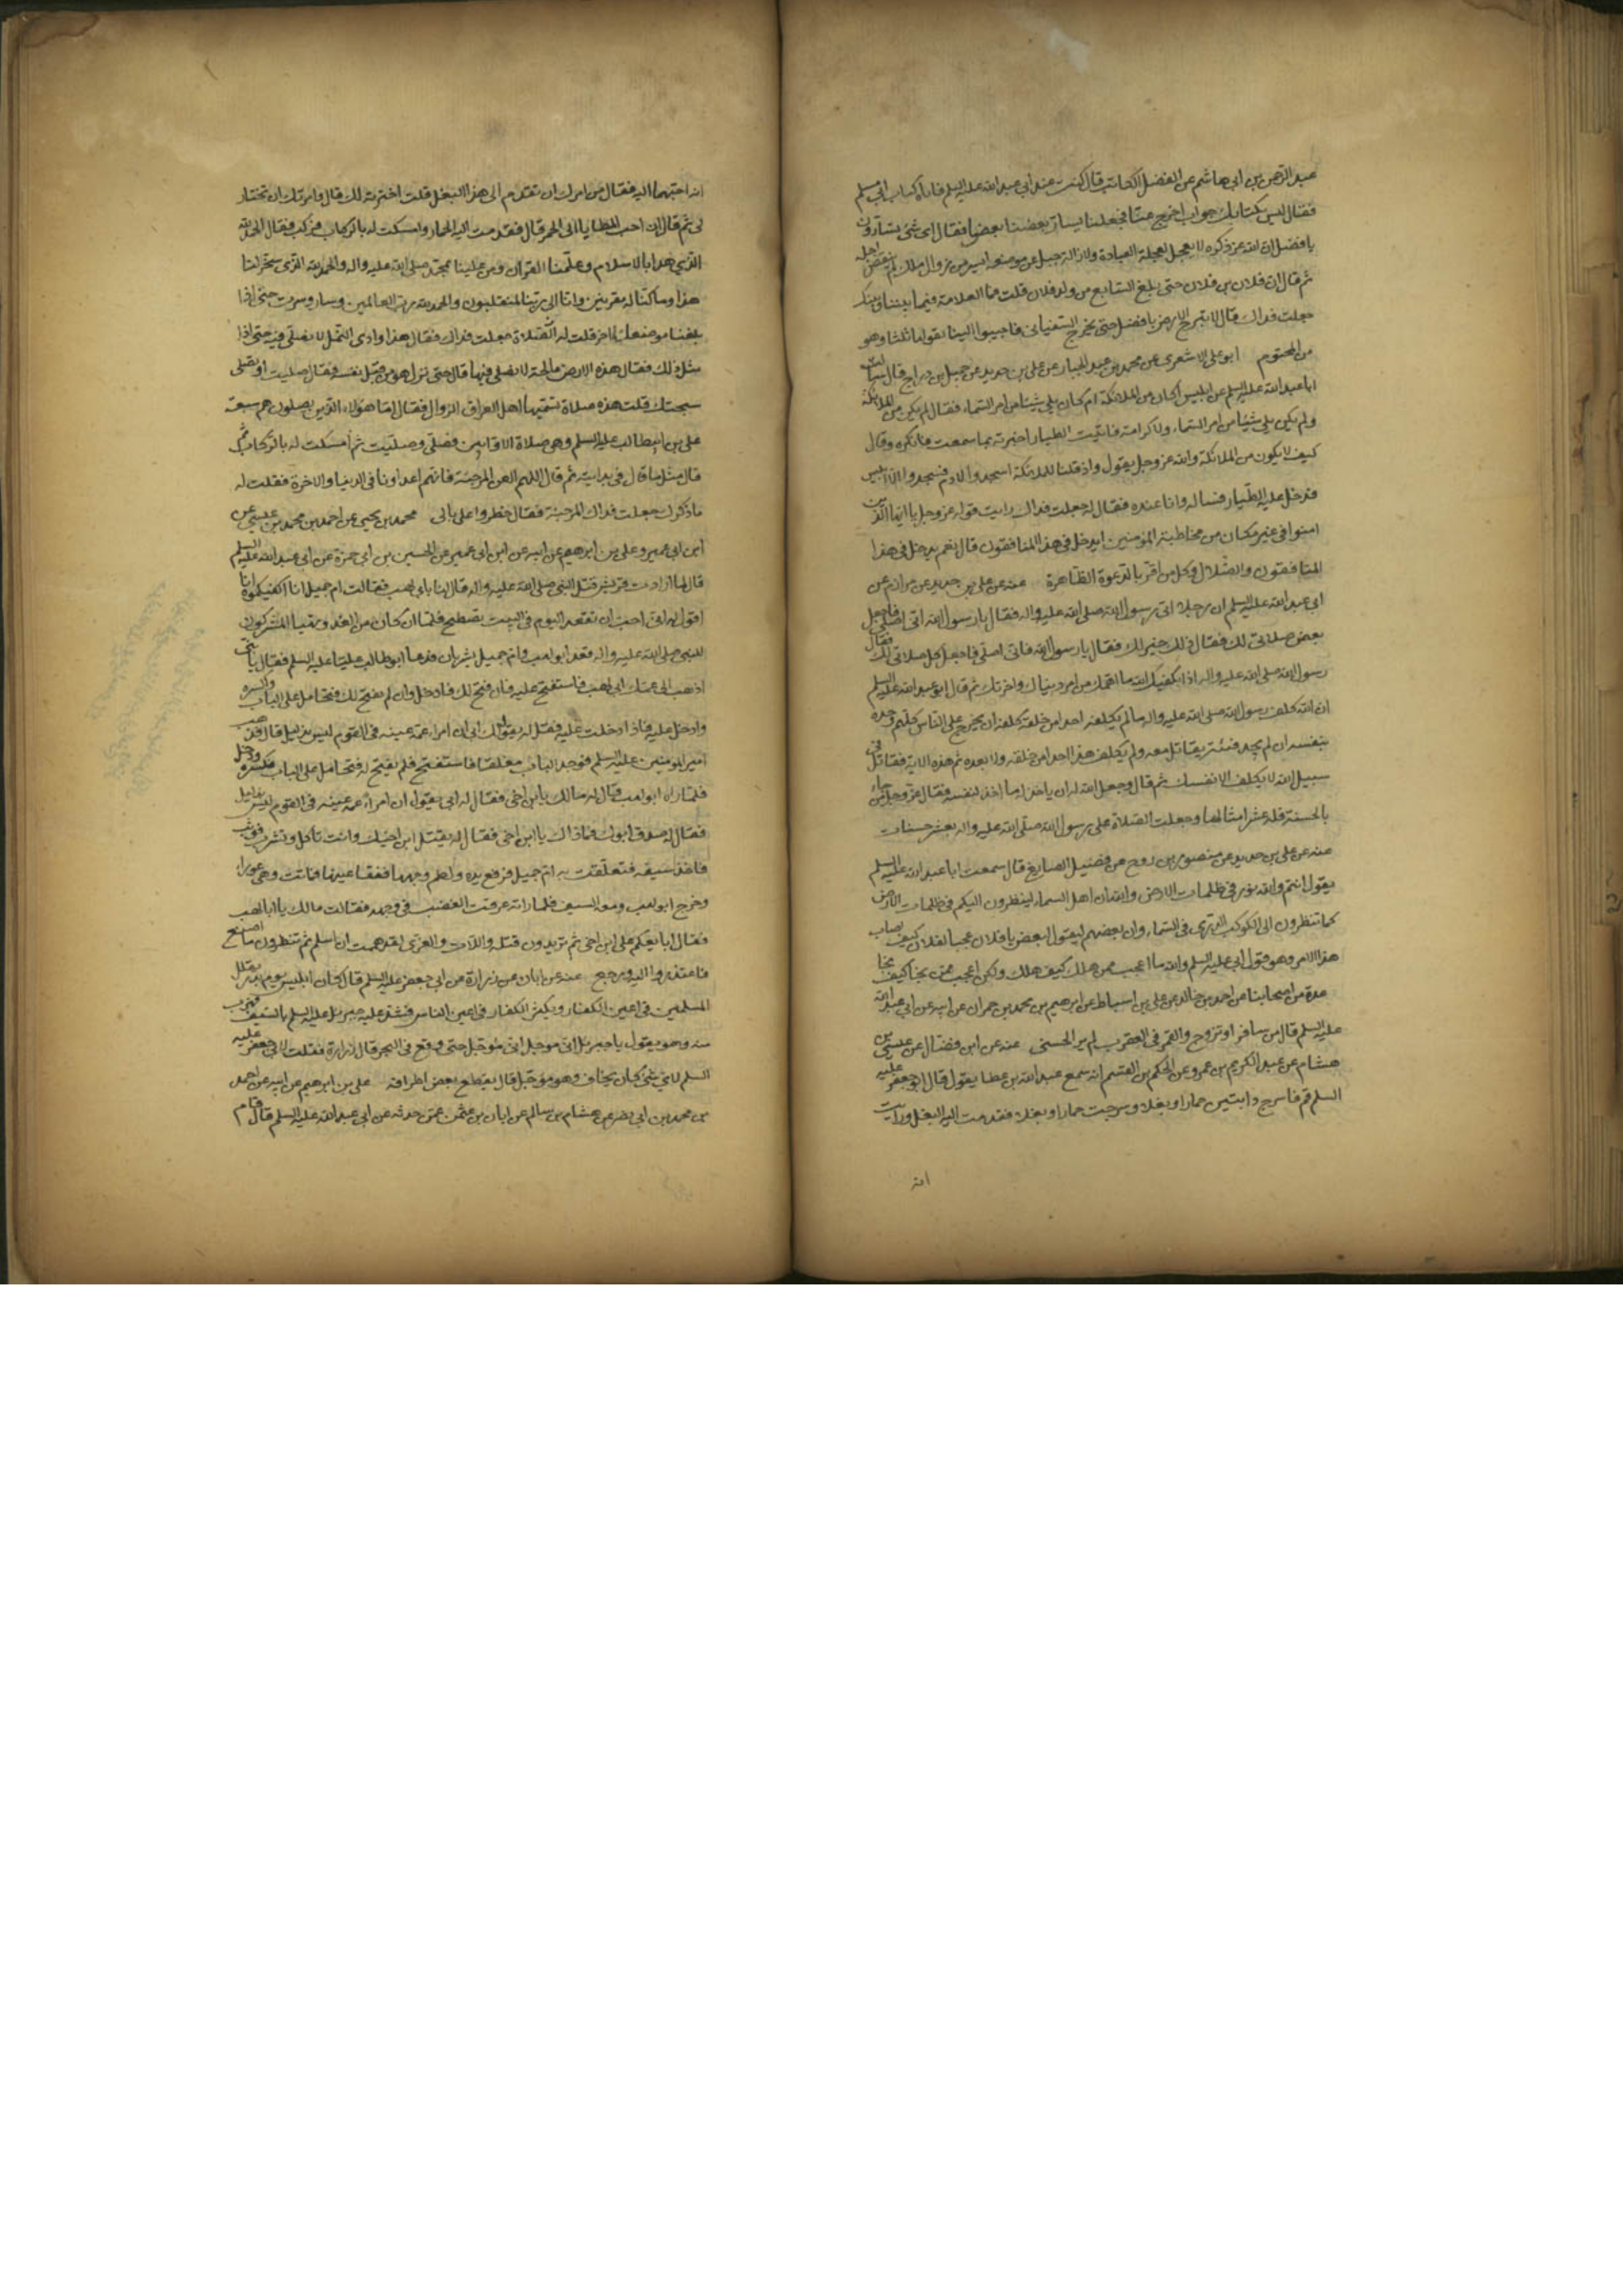 عبد الرحمن بن ابي هاشم عن الفضل الكاتب قال كنت عند ابي عبد الله عليه السلم فاتاه كتاب ابي مسلم
فقال ليس لكتابك جواب اخرج عنا فجعلنا يسار بعضنا بعضا فقال اي شئ تسارون
يا فضل ان الله عز ذكره لا يعجل لعجلة العباد ولازالة جبل عن موضعه ايسر من زوال ملك لم ينقض اجله
ثم قال ان فلان بن فلان حتى بلغ السابع من ولد فلان قلت فما العلامة فيما بيننا وبينك
جعلت فداك قال لا تبرح الارض يا فضل حتى يخرج السفياني فاجيبوا الينا يقولها ثلثا وهو
من المحتوم ابو علي الاشعري عن محمد بن عبد الجبار عن علي بن حديد عن جميل بن دراج قال سالت
ابا عبد الله عليه السلم عن ابليس اكان من الملائكة ام كان يلي شيئا من امر السماء فقال لم يكن من الملائكة
ولم يكن يلي شيئا من امر السماء ولا كرامة فاتيت الطيار اخبرته بما سمعت فانكره وقال
كيف لا يكون من الملائكة والله عز وجل يقول واذ قلنا للملائكة اسجدوا لادم فسجدوا الا ابليس
فدخل عليه الطيار فساله وانا عنده فقال له جعلت فداك رايت قوله عز وجل يا ايها الذين
امنوا في غير مكان من مخاطبة المؤمنين ايدخل في هذا المنافقون قال نعم يدخل في هذا
المنافقون والضلال وكل من اقر بالدعوة الظاهرة عنه عن علي بن حديد عن مرازم عن
ابي عبد الله عليه السلم ان رجلا اتى رسول الله صلى الله عليه واله فقال يا رسول الله اني اصلي فاجعل
بعض صلاتي لك فقال ذلك خير لك فقال يا رسول الله فاني اصلي فاجعل كل صلاتي لك فقال
رسول الله صلى الله عليه واله اذا يكفيك الله ما اهمك من امر دنياك واخرتك ثم قال ابو عبد الله عليه السلم
ان الله كلف رسول الله صلى الله عليه واله ما لم يكلفه احدا من خلقه كلفه ان يخرج على الناس كلهم وحده
بنفسه ان لم يجد فئة يقاتل معه ولم يكلف هذا احدا من خلقه ولا بعده ثم هذه الاية فقاتل في
سبيل الله لا يكلف الا نفسك ثم قال وجعل الله له ان ياخذ له ما اخذ لنفسه فقال عز وجل من جاء
بالحسنة فله عشر امثالها وجعلت الصلاة على رسول الله صلى الله عليه واله بعشر حسنات
عنه عن علي بن حديد عن منصور بن روح عن فضيل الصايغ قال سمعت ابا عبد الله عليه السلم
يقول انتم والله نور في ظلمات الارض والله ان اهل السماء لينظرون اليكم في ظلمات الارض
كما تنظرون الى الكوكب الدري في السماء وان بعضهم ليقول لبعض يا فلان عجبا لفلان كيف اصاب
هذا الامر وهو قول ابي عليه السلم والله ما اعجب ممن هلك كيف هلك ولكن اعجب ممن نجا كيف نجا
عدة من اصحابنا عن احمد بن خالد عن علي بن اسباط عن ابرهيم بن محمد بن حمران عن ابيه عن ابي عبد الله
عليه السلم قال من سافر او تزوج والقمر في العقرب لم ير الحسنى عنه عن ابن فضال عن عيسى بن
هشام عن عبد الكريم بن عمرو عن الحكم بن القسم انه سمع عبد الله بن عطا يقول قال ابو جعفر عليه
السلم قم فاسرج دابتين حمارا وبغلا وسرجت حمارا وبغلا فقدمت اليه البغل ورايت
انه
انه احبهما اليه فقال من امرك ان تقدم الى هذا البغل قلت اخترته لك قال وامرتك ان تختار
لي ثم قال ان احب المطايا الى الحمر قال فقدمت اليه الحمار وامسكت له بالركاب فركب فقال الحمد لله
الذي هدانا بالاسلام وعلمنا القران ومن علينا بمحمد صلى الله عليه واله والحمد لله الذي سخر لنا
هذا وما كنا له مقرنين وانا الى ربنا لمنقلبون والحمد لله رب العالمين وسار وسرت حتى اذا
بلغنا موضعا اخر قلت له الصلاة جعلت فداك فقال هذا وادي النمل لا يصلى فيه حتى اذا
مثل ذلك فقال هذه الارض مالحة لا يصلى فيها قال حتى نزل هو من قبل نفسه فقال صليت او تصلي
سبحتك قلت هذه صلاة تسميها اهل العراق الزوال فقال اما هؤلاء الذين يصلون هم شيعة
علي بن ابيطالب عليه السلم وهي صلاة الاوابين فصلى وصليت ثم امسكت له بالركاب ثم
قال مثل ما قال في بدايته ثم قال اللهم العن المرجئة فانهم اعداونا في الدنيا والاخرة فقلت له
ما ذكرك جعلت فداك المرجئة فقال خطروا على بالي محمد بن يحيى عن احمد بن محمد بن عيسى عن
ابن ابي عمير وعلي بن ابرهيم عن ابيه عن ابن ابي عمير عن الحسين بن ابي حمزة عن ابي عبد الله عليه السلم
قال لما ارادت قريش قتل النبي صلى الله عليه واله قال لنا بابي لهب فقالت ام جميل انا اكفيكموه انا
اقول له اني احب ان تقعد اليوم في البيت نصطبح فلما ان كان من الغد وتهيا المشركون
للنبي صلى الله عليه واله قعد ابو لهب وام جميل يشربان فدعا ابو طالب عليا عليه السلم فقال يا بني
اذهب الى عمك ابي لهب فاستفتح عليه فان فتح لك فادخل وان لم يفتح لك فتحامل على الباب واكسره
وادخل عليه فاذا دخلت عليه فقل له يقول لك ابي ان امرء عمه عينه في القوم ليس بذليل قال فذهب
امير المؤمنين عليه السلم فوجد الباب مغلقا فاستفتح فلم يفتح له فتحامل على الباب فكسره ودخل
فلما راه ابو لهب قال له مالك يا ابن اخي فقال له ابي يقول ان امرء عمه عينه في القوم ليس بذليل
فقال له صدق ابوك فما ذاك يا ابن اخي فقال له يقتل ابن اخيك وانت تاكل وتشرب فوثب
فاخذ سيفه فتعلقت به ام جميل فرفع يده ولطم وجهها ففقا عينها فماتت وهي عوراء
وخرج ابو لهب ومعه السيف فلما راته عرفت الغضب في وجهه فقالت مالك يا ابا لهب
فقال ابايعكم على ابن اخي ثم تريدون قتله واللات والعزى لقد هممت ان اسلم ثم تنظرون ما اصنع
فاعتذروا اليه ورجع عنه عن ابان عن زرارة عن ابي جعفر عليه السلم قال كان ابليس يوم بدر يقلل
المسلمين في اعين الكفار ويكثر الكفار في اعين الناس فشد عليه جبرئل عليه السلم بالسيف فهرب
منه وهو يقول يا جبرئل اني مؤجل اني مؤجل حتى وقع في البحر قال زرارة فقلت لابي جعفر عليه
السلم لاي شئ كان يخاف وهو مؤجل قال يقطع بعض اطرافه علي بن ابرهيم عن ابيه عن احمد
بن محمد بن ابي نصر عن هشام بن سالم عن ابان بن عثمن عمن حدثه عن ابي عبد الله عليه السلم قال قام